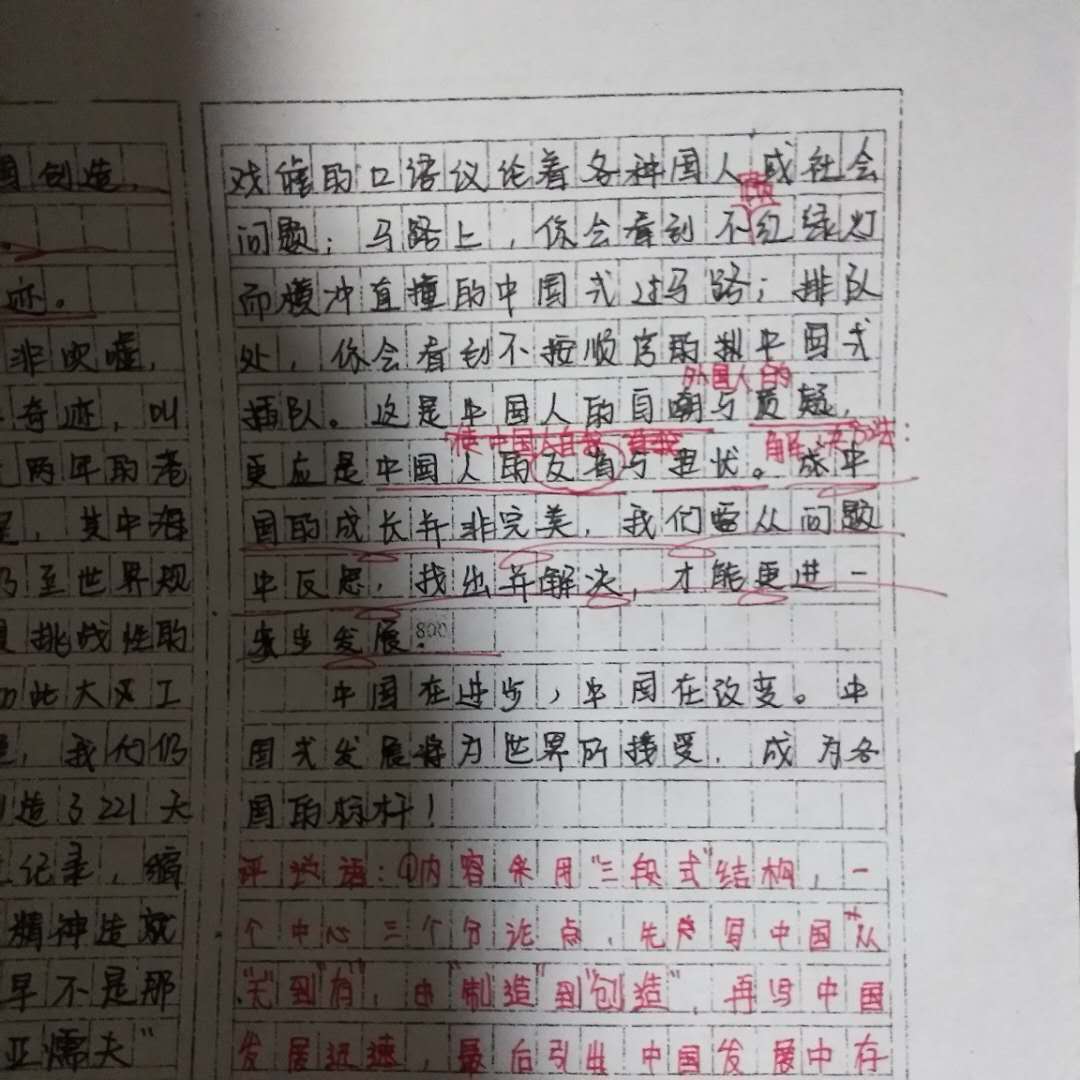 国创造，
迹。
非吹嘘，
奇迹，叫
两年的老
其中海
乃至世界规
挑战性的
如此大义工
我们仍
造了221天
记录，缩
精神造就
早不是那
亚懦夫"
戏谑的口语议论着各种国人或社会
问题；马路上，你会看到不红绿灯
而横冲直撞的中国式过马路；排队
处，你会看到不按顺序的中国式
外国人的
插队。这是中国人的自嘲与质疑，
使中国人自我
更应是中国人的反省与现状。成中
国的成长并非完美，我们要从问题
中反思，找出并解决，才能更进一
步发展。
800
中国在进步，中国在改变。中
国式发展将为世界所接受，成为各
国的标杆！
评语：①内容采用"三段式"结构，一
个中心三个分论点，先写中国"从
"无"到"有"，由"制造"到"创造"，再写中国
发展迅速，最后引出中国发展中存